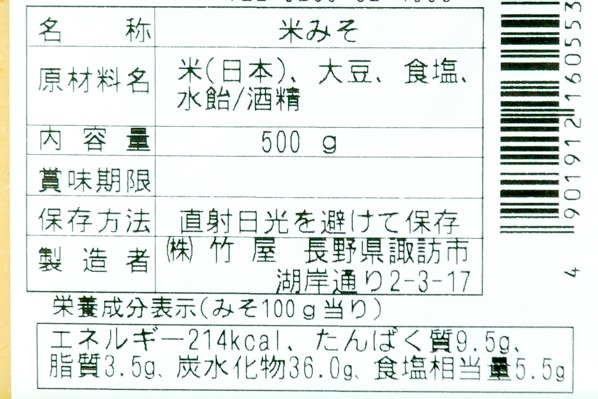 名称 米みそ
原材料名 米(日本)、大豆、食塩、
水飴/酒精
内容量 500g
賞味期限
保存方法 直射日光を避けて保存
製造者 ㈱竹屋 長野県諏訪市
湖岸通り2-3-17
栄養成分表示(みそ100g当り)
エネルギー214kcal、たんぱく質9.5g、
脂質3.5g、炭水化物36.0g、食塩相当量5.5g
4 901912 160553